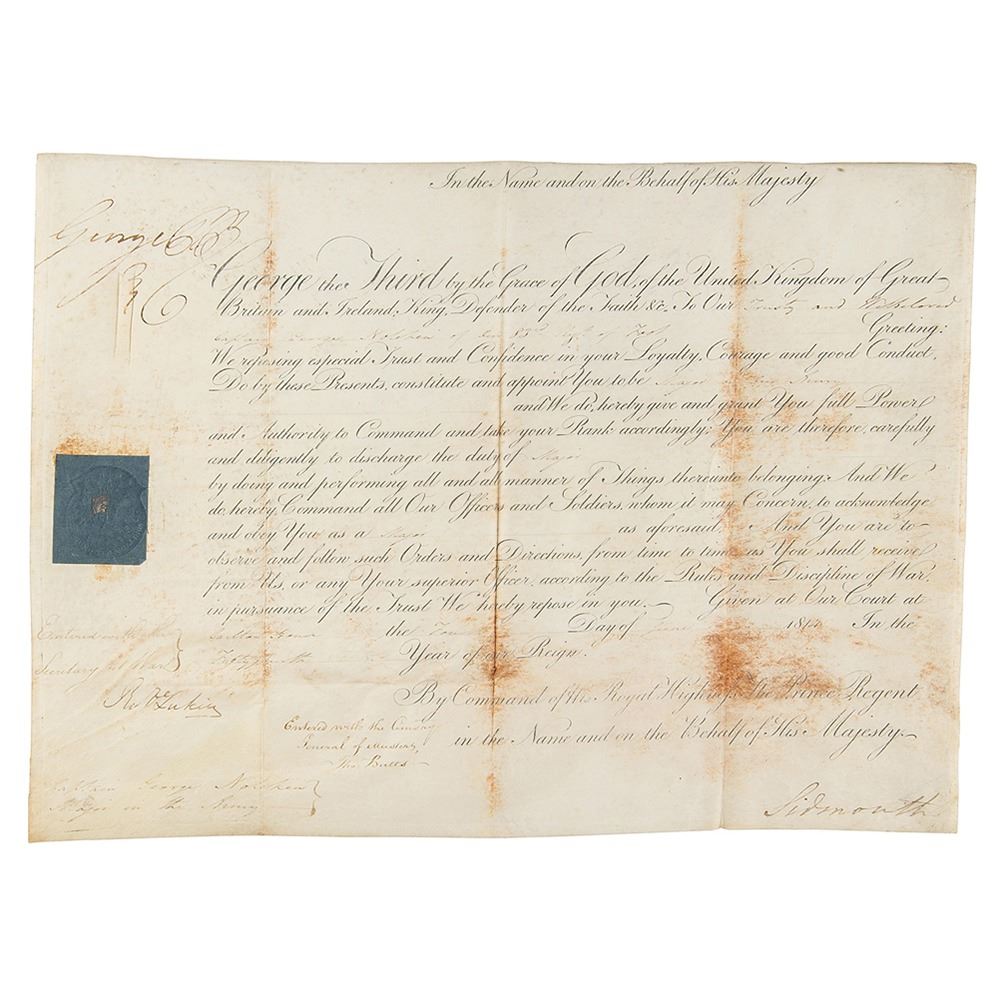 In the Name and on the Behalf of His Majesty
George P R
George the Third by the Grace of God, of the United Kingdom of Great
Britain and Ireland, King, Defender of the Faith &c. To Our Trusty and Welbeloved
Captain George Nolcken of the 83rd Regt of Foot Greeting:
We reposing especial Trust and Confidence in your Loyalty, Courage and good Conduct,
Do by these Presents, constitute and appoint You to be Major in the Army
and We do, hereby give and grant You full Power
and Authority to Command and take your Rank accordingly. You are therefore, carefully
and diligently to discharge the duty of Major
by doing and performing all and all manner of Things thereunto belonging: And We
do, hereby, Command all Our Officers and Soldiers, whom it may Concern, to acknowledge
and obey You as a Major as aforesaid, And You are to
observe and follow such Orders and Directions, from time to time, as You shall receive
from Us, or any Your superior Officer, according to the Rules and Discipline of War,
in pursuance of the Trust We hereby repose in you. Given at Our Court at
Carlton House the Day of June In the
Year of our Reign.
Entered with the
Secretary at War
By Command of His Royal Highness The Prince Regent
in the Name and on the Behalf of His Majesty.
Entered with the
General of Musters
Tho Butts
Captain George Nolcken
Major in the Army
Sidmouth